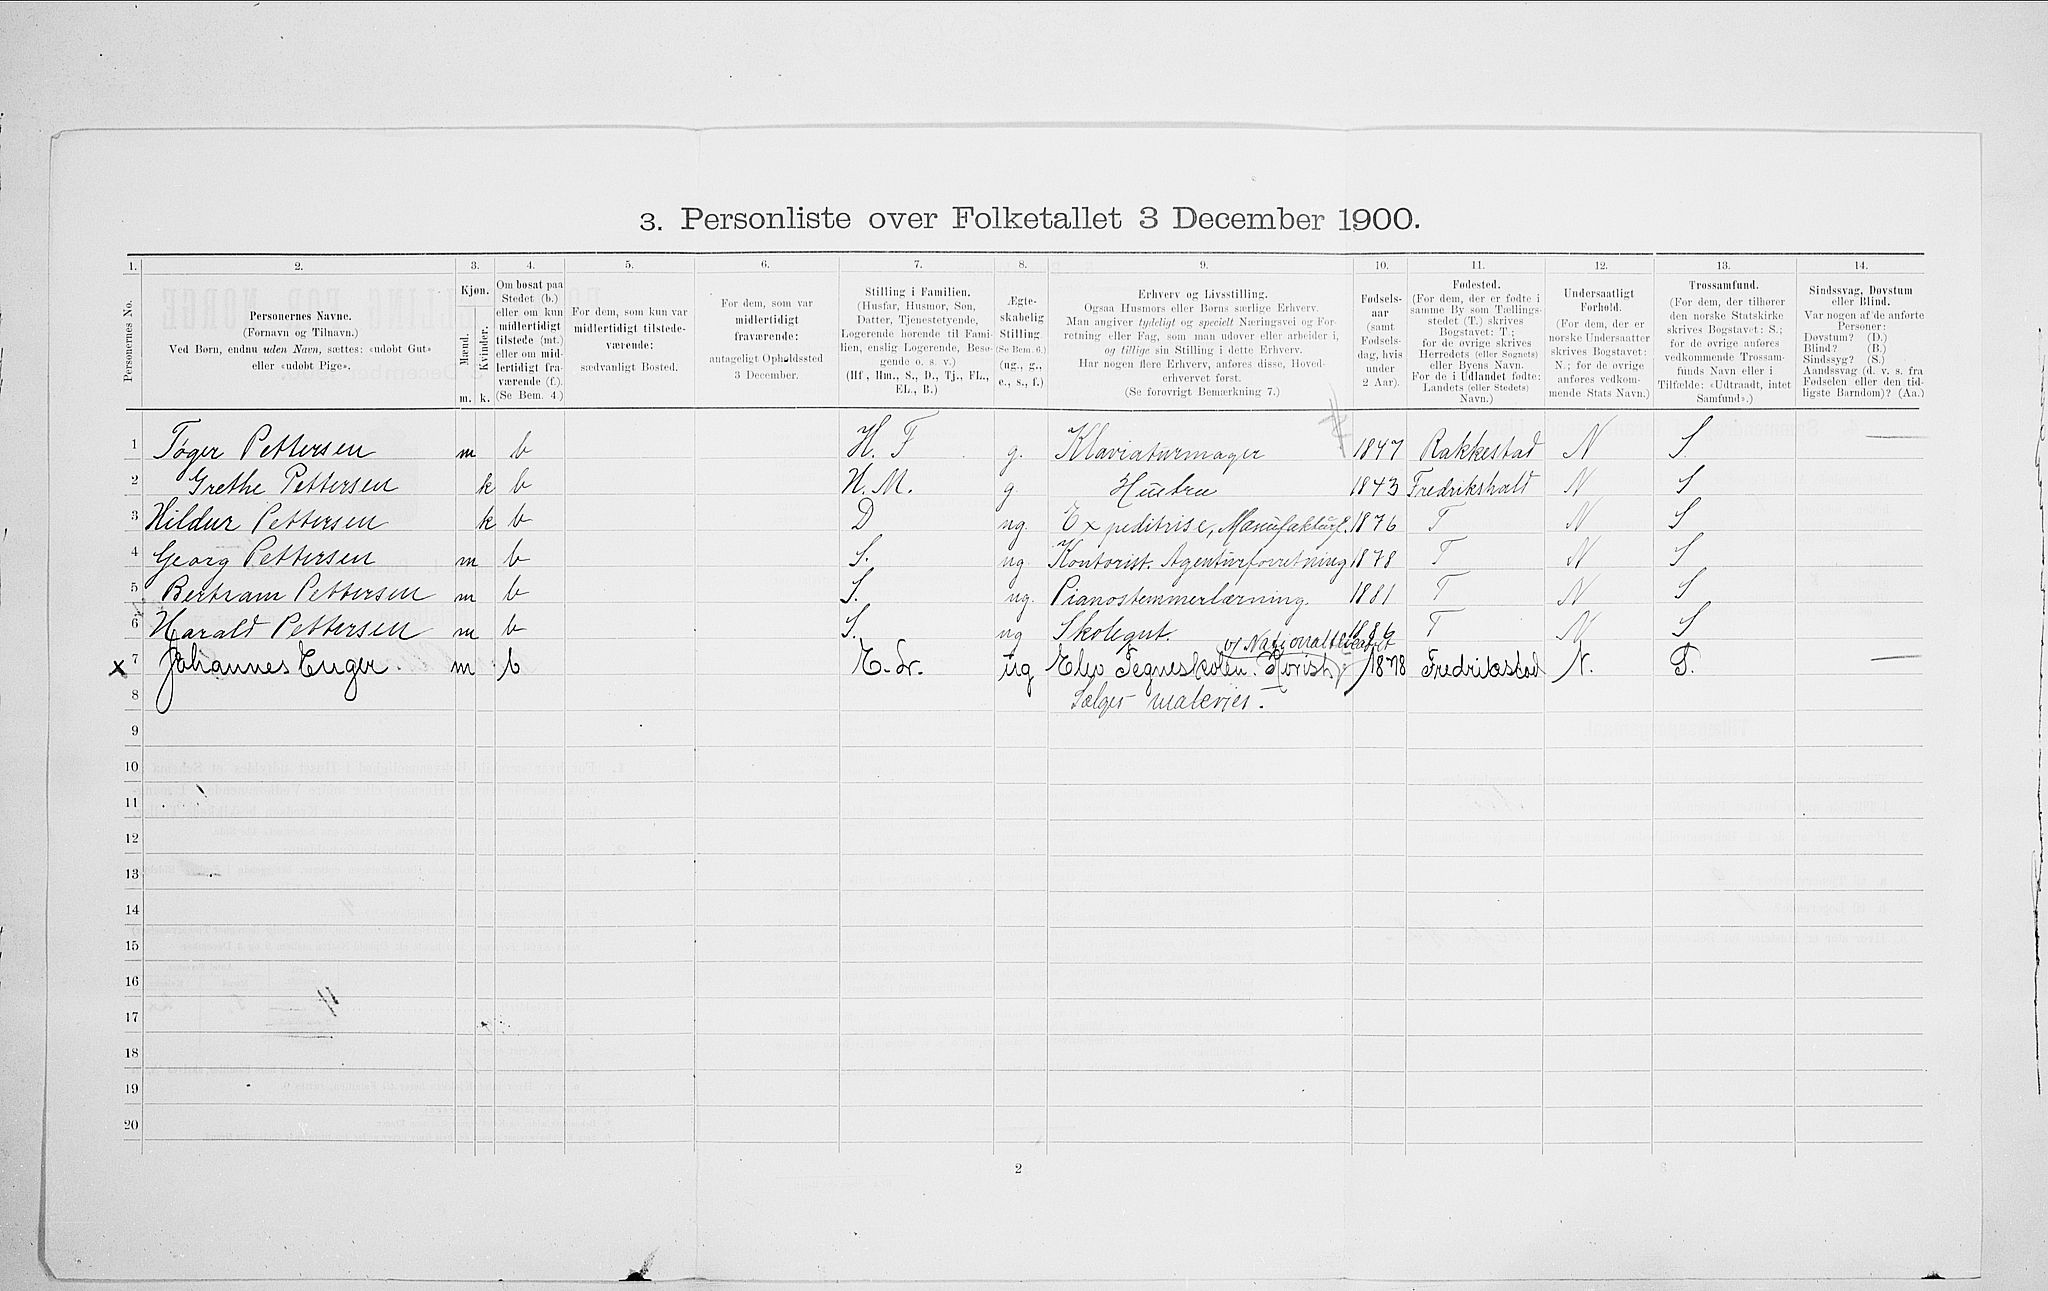 3. Personliste over Folketallet 3 December 1900.
1. 2. 3. 4. 5. 6. 7. 8. 9. 10. 11. 12. 13. 14.
Personernes No.
Personernes Navne.
(Fornavn og Tilnavn.)
Ved Børn, endnu uden Navn, sættes: «udobt Gut»
eller «udobt Pige».
Kjøn.
Mænd.
Kvinder.
m. k.
Om bosat paa
Stedet (b.)
eller om kun
midlertidigt
tilstede (mt.)
eller om mid-
lertidigt fra-
værende (f.).
(Se Bem. 4.)
For dem, som kun var
midlertidigt tilstede-
værende:
sædvanligt Bosted.
For dem, som var
midlertidigt
fraværende:
antageligt Opholdssted
3 December.
Stilling i Familien.
(Husfar, Husmor, Søn,
Datter, Tjenestetyende,
Logerende hørende til Fami-
lien, enslig Logerende, Besø-
gende o. s. v.)
(Hf., Hm., S., D., Tj., FL.,
EL., B.)
Ægte-
skabelig
Stilling.
(Se Bem. 6.)
(ug., g.,
e., s., f.)
Erhverv og Livsstilling.
Ogsaa Husmors eller Børns særlige Erhverv.
Man angiver tydeligt og specielt Næringsvei og For-
retning eller Fag, som man udøver eller arbeider i,
og tillige sin Stilling i dette Erhverv.
Har nogen flere Erhverv, anføres disse, Hoved-
erhvervet først.
(Se forøvrigt Bemærkning 7.)
Fødsels-
aar
(samt
Fødsels-
dag, hvis
under
2 Aar).
Fødested.
(For dem, der er fødte i
samme By som Tællings-
stedet (T.) skrives
Bogstavet: T.;
for de øvrige skrives
Herredets (eller Sognets)
eller Byens Navn.
For de i Udlandet fødte:
Landets (eller Stedets)
Navn.)
Undersaatligt
Forhold.
(For dem, der er
norske Undersaatter
skrives Bogstavet:
N.; for de øvrige
anføres vedkom-
mende Stats Navn.)
Trossamfund.
(For dem, der tilhører
den norske Statskirke
skrives Bogstavet: S.;
for de øvrige anføres
vedkommende Trossam-
funds Navn eller i
Tilfælde: «Udtraadt, intet
Samfund».)
Sindssvag, Døvstum
eller Blind.
Var nogen af de anførte
Personer:
Døvstum? (D.)
Blind? (B.)
Sindssyg? (S.)
Aandssvag (d. v. s. fra
Fødselen eller den tid-
ligste Barndom)? (Aa.)
1 Tøger Pettersen m b H. F g. Klaviaturmager 1847 Rakkestad N S
2 Grethe Pettersen k b H. M. g Hustru 1843 Fredrikshald N S
3 Hildur Pettersen k b D ug. Expeditrise, Manufakturf. 1876 T N S
4 Georg Pettersen m b S. ug Kontorist. Agenturforretning 1878 T N S
5 Bertram Pettersen m b S. ug. Pianostemmerlærning. 1881 T N S
6 Harald Pettersen m b S. ug Skolegut. 1886 T N S
x 7 Johannes Enger. m b E. Lr. ug Elev Tegneskolen. 1878 Fredrikstad N. T.
8 Sælges materies.
9
10
11
12
13
14
15
16
17
18
19
20
2